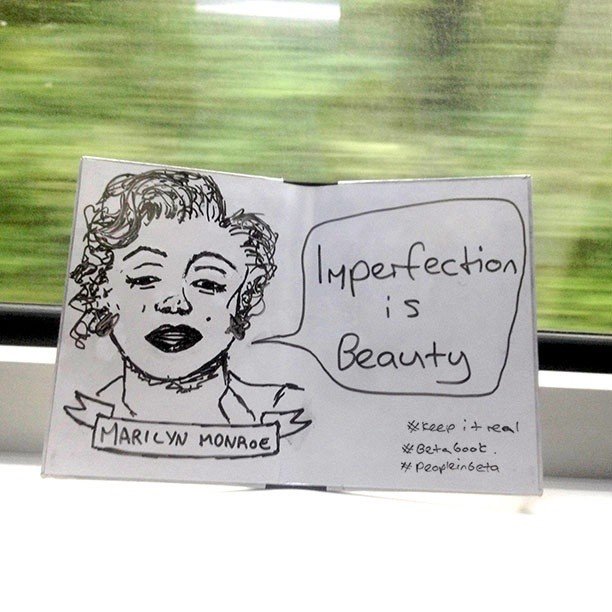 Imperfection
is
Beauty
MARILYN MONROE
#keep it real
#Betabook.
#peopleinbeta